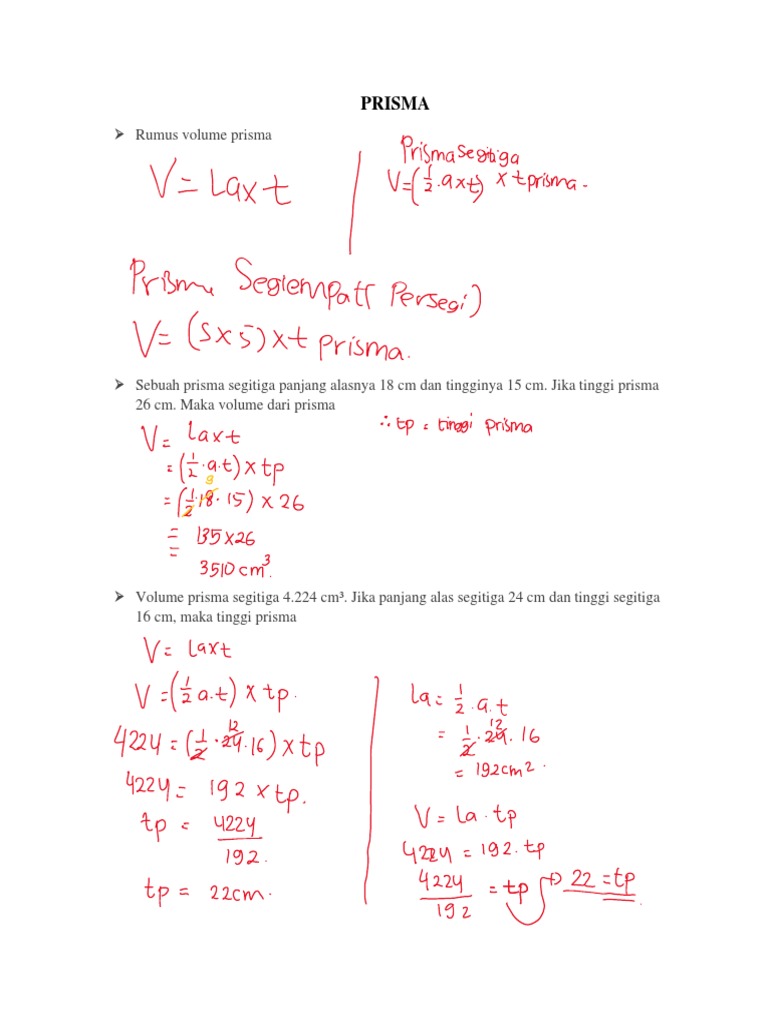 PRISMA
➢ Rumus volume prisma
V = Laxt
Prisma segitiga
V=(1/2.axt) x tprisma.
Prisma Segiempat( Persegi)
V= (s x s) x t prisma.
➢ Sebuah prisma segitiga panjang alasnya 18 cm dan tingginya 15 cm. Jika tinggi prisma
26 cm. Maka volume dari prisma
∴ tp = tinggi prisma
V = Laxt
= (1/2.a.t) x tp
9
= (1/2.18.15) x 26
= 135 x 26
=
3510 cm³.
➢ Volume prisma segitiga 4.224 cm³. Jika panjang alas segitiga 24 cm dan tinggi segitiga
16 cm, maka tinggi prisma
V = Laxt
V = (1/2 a.t) x tp.
12
4224 = (1/2.24.16) x tp
4224 = 192 x tp.
tp = 4224/192.
tp = 22cm.
La = 1/2.a.t
12
= 1/2.24.16
= 192cm².
V = La . tp
4224 = 192. tp
4224/192 = tp → 22 = tp